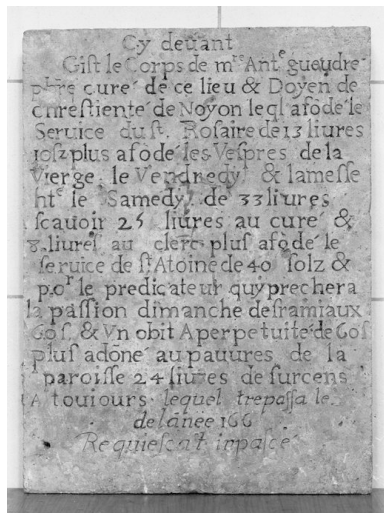 Cy deuant
Gist le Corps de m^re Ant^e gueudre
p^bre cure de ce lieu & Doyen de
chrestiente de Noyon leql a fõdé le
Seruice du s^t. Rosaire de 13 liures
10 s plus a fõdé les Vespres de la
Vierge le Vendredy & la messe
ht^e le Samedy de 33 liures
scauoir 25 liures au curé &
8. liures au clerc plus a fõdé le
seruice de s^t Atoine de 40 solz &
po^r le predicateur quy prechera
la passion dimanche des ramiaux
60 s. & Vn obit A perpetuite de 60 s
plus a doñe au pauures de la
paroisse 24 liures de surcens
A toujours lequel trepassa le
de lãnee 166
Requiescat in pasce